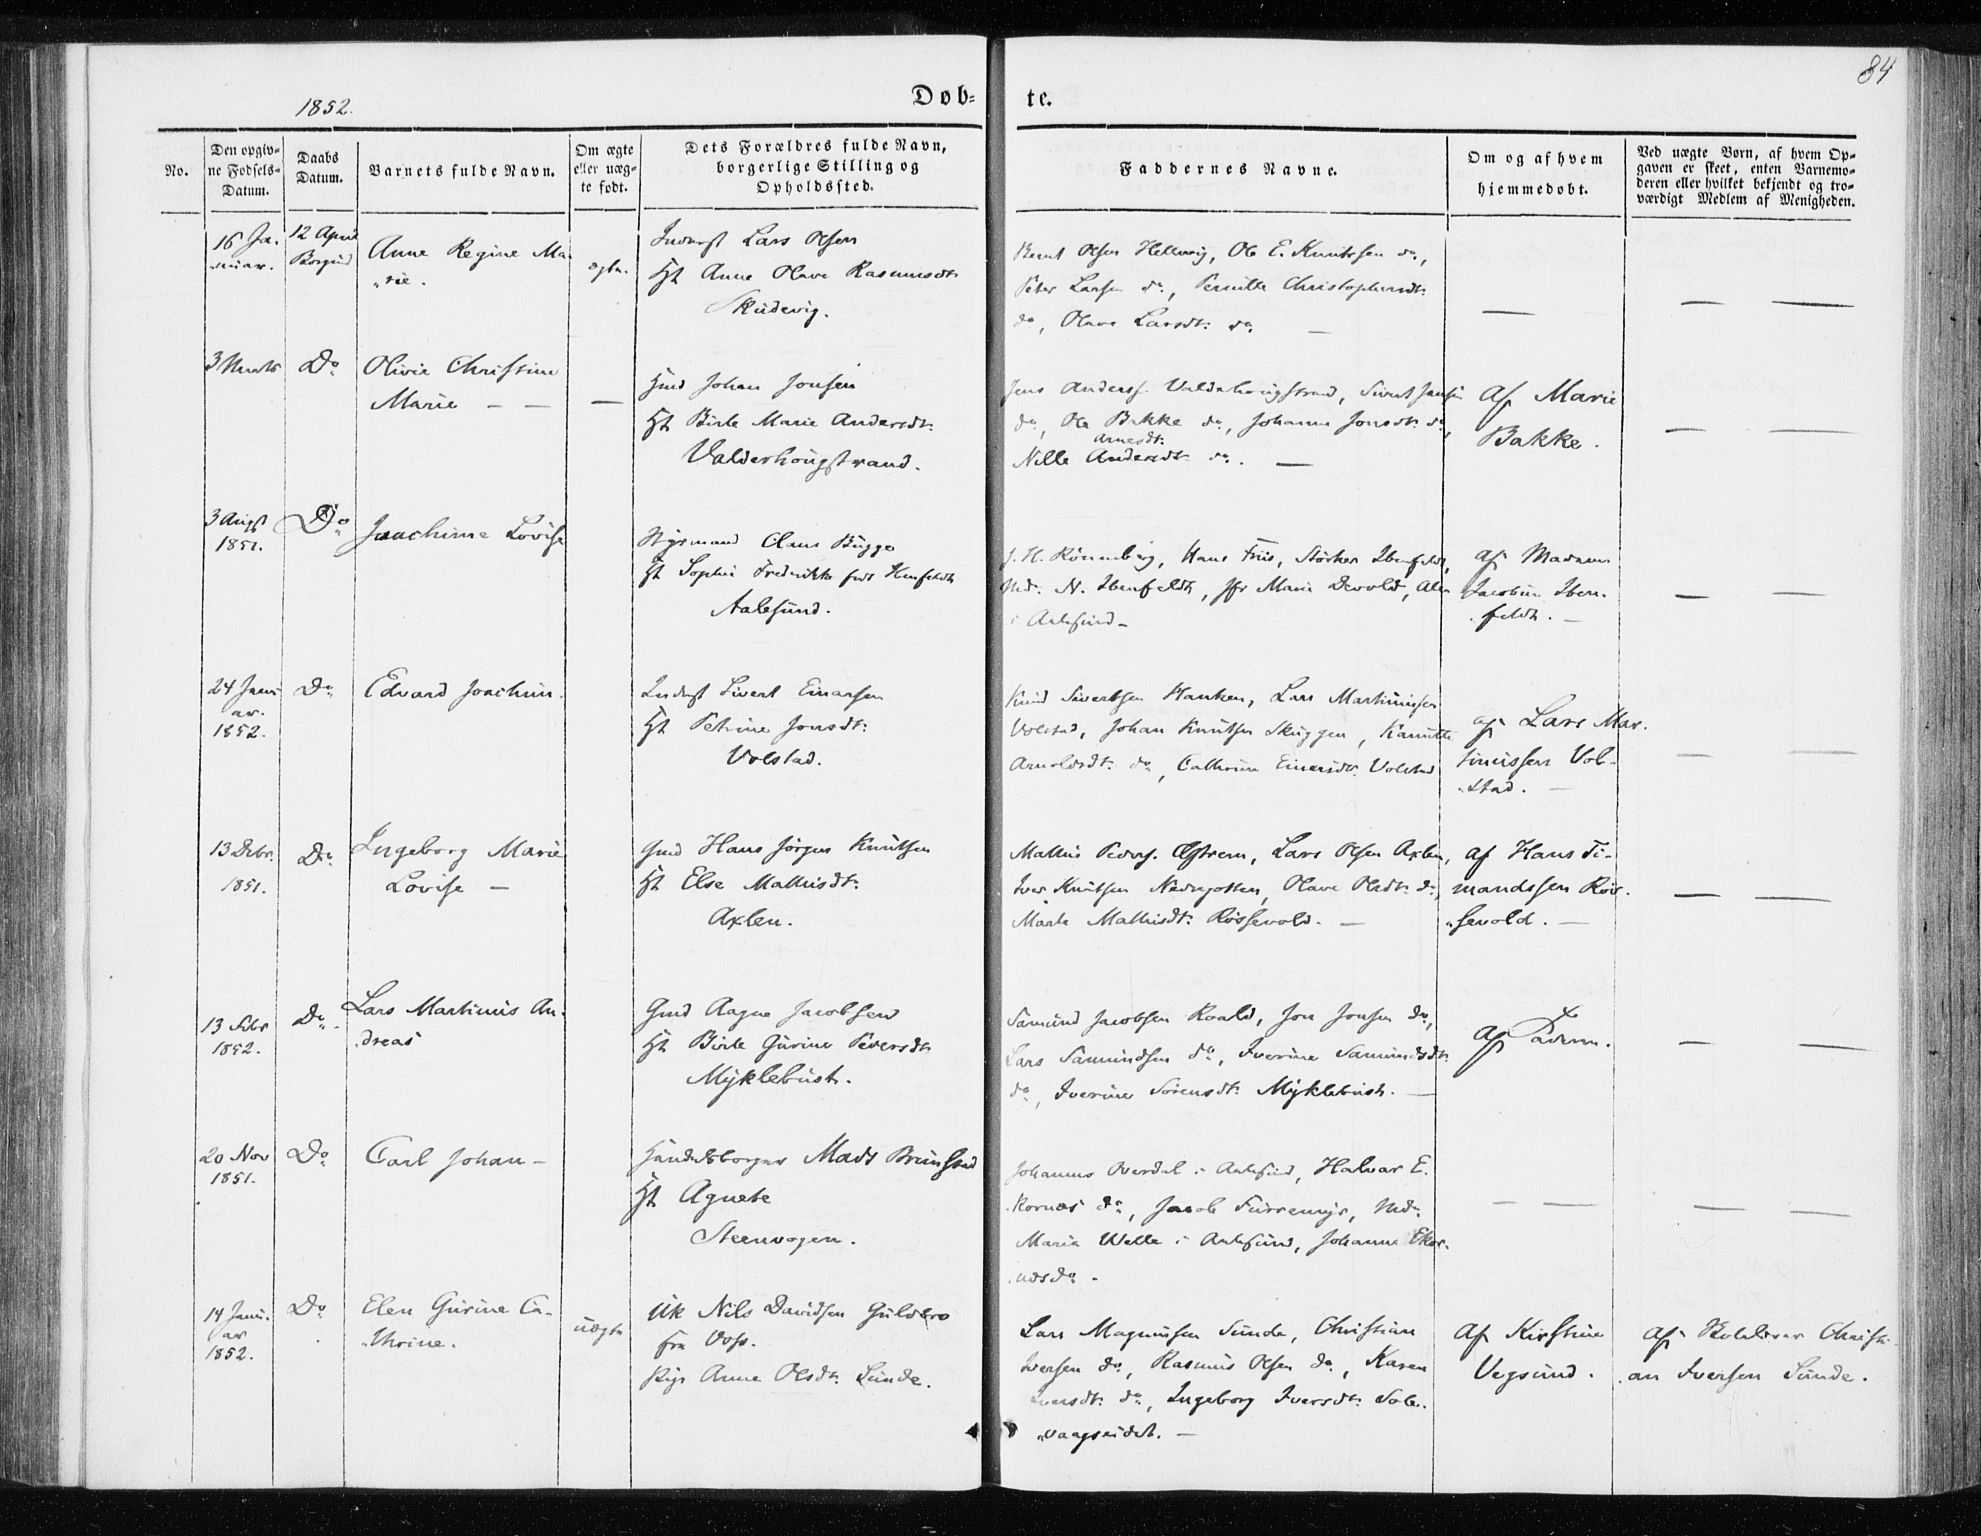 84
1852.
Døb-
te.
No.
Den opgiv-
ne Fødsels-
Datum.
Daabs
Datum.
Barnets fulde Navn.
Om ægte
eller uæg-
te født.
Dets Forældres fulde Navn,
borgerlige Stilling og
Opholdssted.
Faddernes Navne.
Om og af hvem
hjemmedøbt.
Ved uægte Børn, af hvem Op-
gaven er skeet, enten Barnemo-
deren eller hvilket bekjendt og tro-
værdigt Medlem af Menigheden.
16 Ja-
nuar.
12 April
Borgund
Anne Regine Ma-
rie.
ægte.
Lars Olsen
Anne Olave Rasmusdtr
Skudevig.
Bernt Olsen Hellevig, Ole E. Knutsen do,
Peter Larsen do, Pernille Christophersdtr
do, Olave Larsdtr: do. —
—
— —
3 Marts
Do
Olivie Christine
Marie — —
—
Gmd Johan Jonsen
Birte Marie Andersdtr:
Valderhougstrand.
Jens Anders. Valderhougstrand, Sivert Jensen
do, Ole Bakke do, Johanne Jonsdtr: do,
Arnesdt:
Nille Andersdtr do. —
Af Marie
Bakke.
— —
3 Augst
1851.
Do
Joachime Lovise
Styrmand Claus Bugge
Sophie Fredrikke født
Aalesund.
J. H. Rønneberg, Hans Friis, Støcker Ibenfeldt,
Md: N. Ibenfeldt, Jfr Marie Devold, Alle
i Aalesund —
af Madam
Jacobine Iben-
feldt. —
— —
24 Janu-
ar.
1852.
Do
Edvard Joachim.
Sivert Einarsen
Petrine Jonsdt:
Volstad.
Knud Sivertsen Hanken, Lars Martinusen
Volstad, Johan Knutsen Skuggen,
Arnoldsdt: do, Cathrine Einersdt: Volstad
af Lars Mar-
tinussen Vol-
stad. —
— —
13 Debr.
1851.
Do
Ingeborg Marie
Lovise —
Gmd Hans Jørgen Knutsen
Else Mathisdt:
Axlen.
Mathis Peders. Østrem, Lars Olsen Axlen,
Iver Knutsen, Olave Olsdt: do,
Marte Mathisdt: Røssevold. —
Af Hans Ti-
mandssen Røs-
sevold. —
— —
13 Febr
1852.
Do.
Lars Martinus An-
dreas
Gmd Aagne Jacobsen
Birte Gurine Pedersdt
Myklebust.
Samund Jacobsen Roald, Jon Jonsen do,
Lars Samundsen do, Iverine Samundsdt:
do, Iverine Sørensdt: Myklebust. —
Af Faderen.
— —
20 Nov
1851.
Do
Carl Johan —
Handelsborger Mads Brunstad
Agnete
Steenvogen.
Johannes Overdal i Aalesund, Halvar E-
kornæs do, Jacob Furremyr, Md:
Maria Welle i Aalesund, Johanne Ekor-
næs do.
— —
— —
14 Janu-
ar
1852.
Do
Elen Gurine Ca-
thrine.
uægte
Uk Nils Davidsen Guldbro
fra Voss.
Pige Anne Olsdt: Sunde.
Lars Magnusen Sunde, Christian
Iversen do, Rasmus Olsen do, Karen
Iversdt: do, Ingeborg Iversdt: Sole-
vaagseidet. —
Af Kirstine
Vegsund.
af Skolelærer Christi-
an Iversen Sunde.